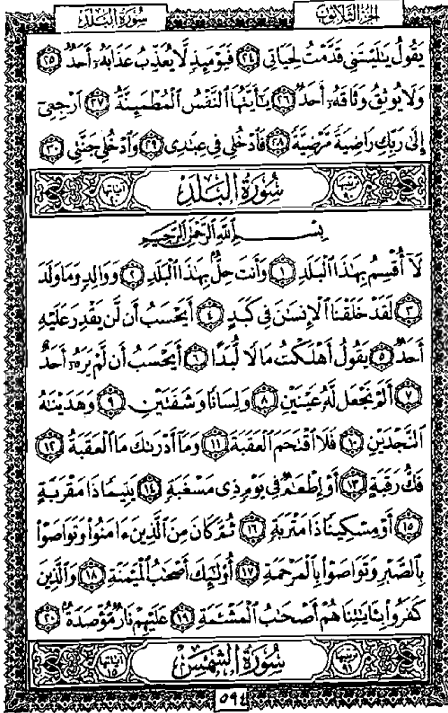 سُورَةُ البَلَدِ الجُزءُ الثَّلاثُونَ
يَقُولُ يَٰلَيْتَنِى قَدَّمْتُ لِحَيَاتِى ٢٤ فَيَوْمَئِذٍ لَّا يُعَذِّبُ عَذَابَهُۥٓ أَحَدٌ ٢٥
وَلَا يُوثِقُ وَثَاقَهُۥٓ أَحَدٌ ٢٦ يَٰٓأَيَّتُهَا ٱلنَّفْسُ ٱلْمُطْمَئِنَّةُ ٢٧ ٱرْجِعِىٓ
إِلَىٰ رَبِّكِ رَاضِيَةً مَّرْضِيَّةً ٢٨ فَٱدْخُلِى فِى عِبَٰدِى ٢٩ وَٱدْخُلِى جَنَّتِى ٣٠
سُورَةُ البَلَدِ
بِسْمِ ٱللَّهِ ٱلرَّحْمَٰنِ ٱلرَّحِيمِ
لَآ أُقْسِمُ بِهَٰذَا ٱلْبَلَدِ ١ وَأَنتَ حِلٌّۢ بِهَٰذَا ٱلْبَلَدِ ٢ وَوَالِدٍ وَمَا وَلَدَ
٣ لَقَدْ خَلَقْنَا ٱلْإِنسَٰنَ فِى كَبَدٍ ٤ أَيَحْسَبُ أَن لَّن يَقْدِرَ عَلَيْهِ
أَحَدٌ ٥ يَقُولُ أَهْلَكْتُ مَالًا لُّبَدًا ٦ أَيَحْسَبُ أَن لَّمْ يَرَهُۥٓ أَحَدٌ
٧ أَلَمْ نَجْعَل لَّهُۥ عَيْنَيْنِ ٨ وَلِسَانًا وَشَفَتَيْنِ ٩ وَهَدَيْنَٰهُ
ٱلنَّجْدَيْنِ ١٠ فَلَا ٱقْتَحَمَ ٱلْعَقَبَةَ ١١ وَمَآ أَدْرَىٰكَ مَا ٱلْعَقَبَةُ ١٢
فَكُّ رَقَبَةٍ ١٣ أَوْ إِطْعَٰمٌ فِى يَوْمٍ ذِى مَسْغَبَةٍ ١٤ يَتِيمًا ذَا مَقْرَبَةٍ
١٥ أَوْ مِسْكِينًا ذَا مَتْرَبَةٍ ١٦ ثُمَّ كَانَ مِنَ ٱلَّذِينَ ءَامَنُوا۟ وَتَوَاصَوْا۟
بِٱلصَّبْرِ وَتَوَاصَوْا۟ بِٱلْمَرْحَمَةِ ١٧ أُو۟لَٰٓئِكَ أَصْحَٰبُ ٱلْمَيْمَنَةِ ١٨ وَٱلَّذِينَ
كَفَرُوا۟ بِـَٔايَٰتِنَا هُمْ أَصْحَٰبُ ٱلْمَشْـَٔمَةِ ١٩ عَلَيْهِمْ نَارٌ مُّؤْصَدَةٌۢ ٢٠
سُورَةُ الشَّمْسِ
٥٩٤